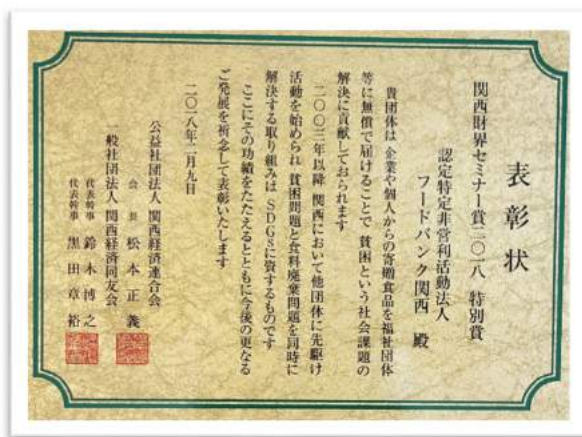 表彰状
関西財界セミナー賞二〇一八 特別賞
認定特定非営利活動法人
フードバンク関西 殿
貴団体は 企業や個人からの寄贈食品を福祉団体
等に無償で届けることで 貧困という社会課題の
解決に貢献しておられます
二〇〇三年以降 関西において他団体に先駆け
活動を始められ 貧困問題と食料廃棄問題を同時に
解決する取り組みは SDGsに資するものです
ここにその功績をたたえるとともに今後の更なる
ご発展を祈念して表彰いたします
二〇一八年二月九日
公益社団法人 関西経済連合会
会長 松本正義
一般社団法人 関西経済同友会
代表幹事 鈴木博之
代表幹事 黒田章裕